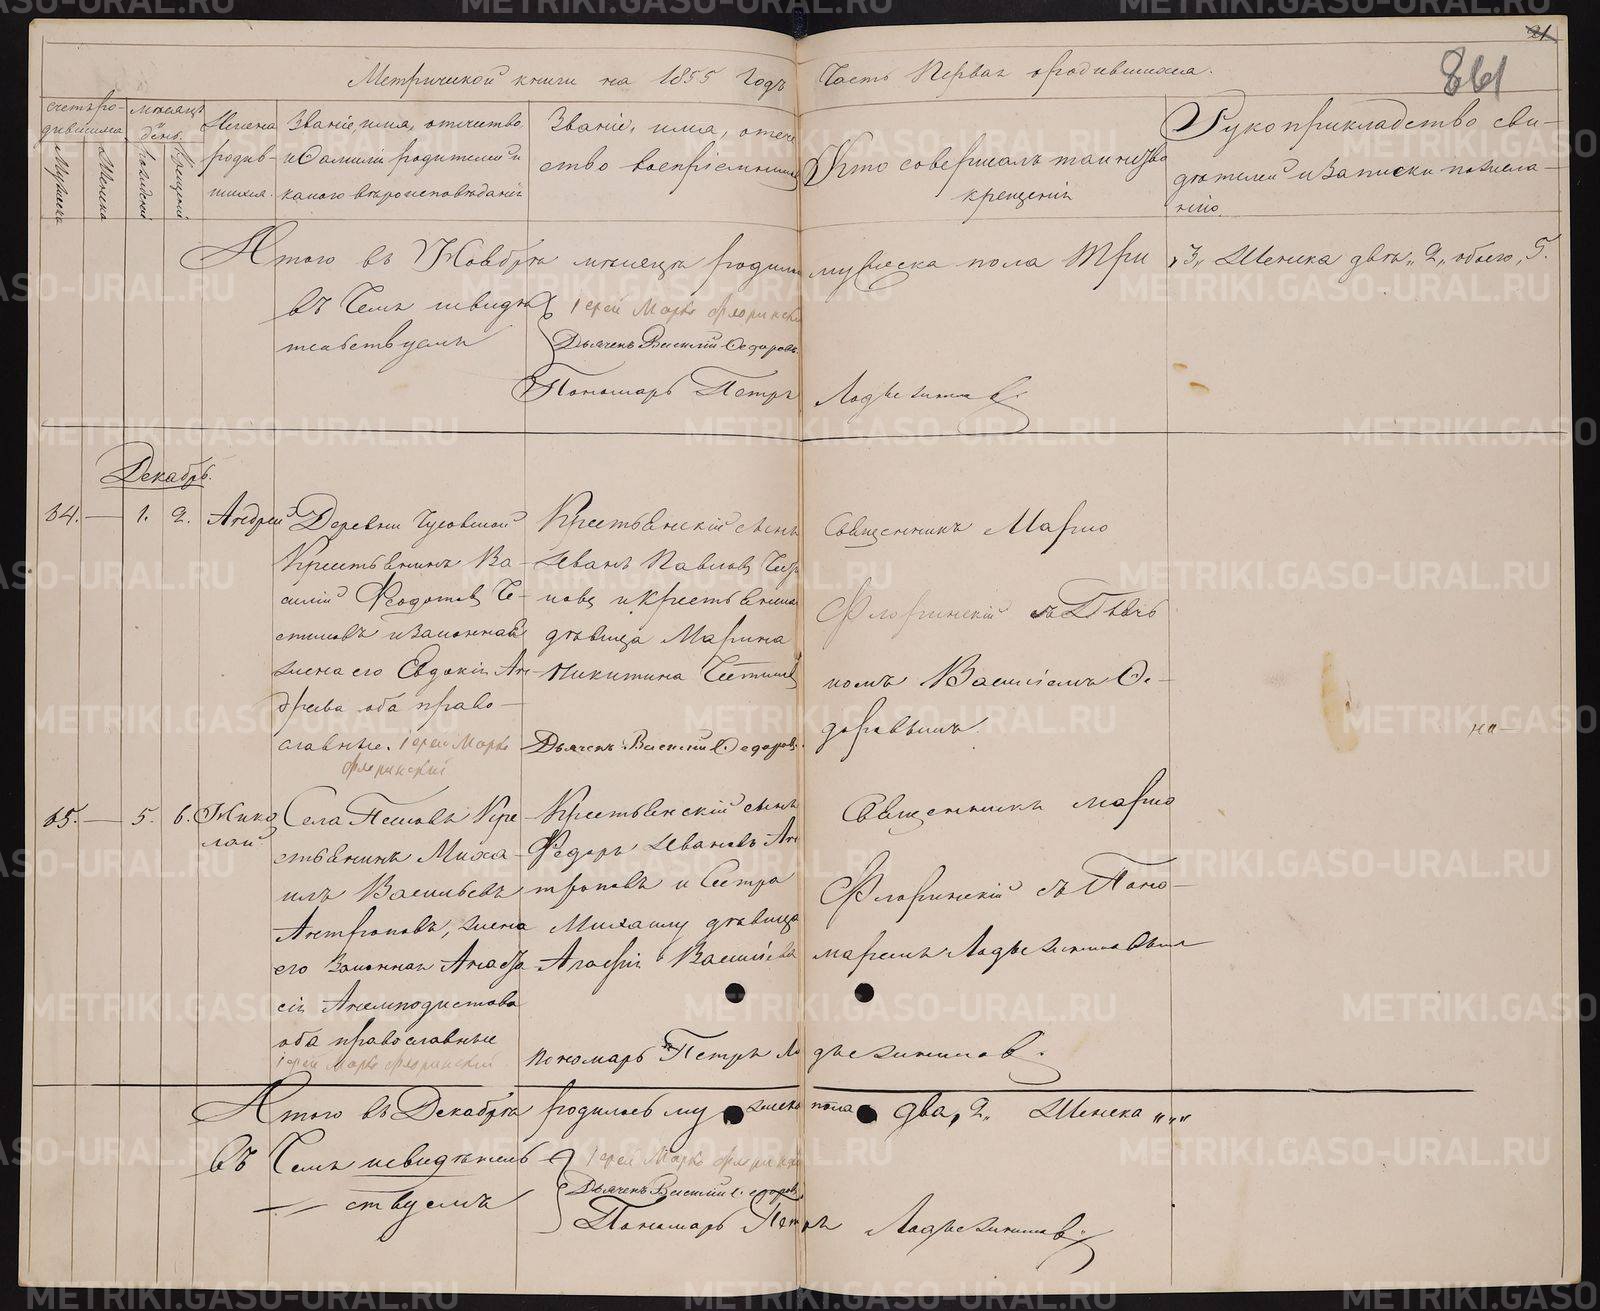 Метрической книги на 1855 годъ Часть Первая о родившихся.
21
861
Счетъ ро-
дившихся
Мужеска
Женска
Мѣсяцъ
и день.
Рожденія
Крещенія
Имена
родив-
шихся.
Званіе, имя, отчество
и Фамилія родителей и
какого вѣроисповѣданія
Званіе, имя, отче
ство воспріемниковъ
Кто совершалъ таинство
крещенія
Рукоприкладство сви-
дѣтелей и записки по жела-
нію.
Итого въ Ноябрѣ мѣсяцѣ родилось мужеска пола три „3„ Женска двѣ „2„ обоего „5.
въ Чемъ и свидѣ-
тельствуемъ
Іерей Марко Флоринскій
Дьячекъ Василий Федоровъ
Пономарь Петръ
Декабрь.
34. — 1. 2. Андрей
Деревни
Крестьянинъ Ва-
силій Федотовъ Че-
и законная
жена его Евдокія Ан-
дреева оба право-
славные. Іерей Марко
Флоринскій
Крестьянскій сынъ
Иванъ Павловъ
и Крестьянская
дѣвица Марина
Никитина
Дьячекъ Василий Федоровъ.
Священникъ Марко
Флоринскій съ Дьяч
комъ Василіемъ Ѳе-
доровымъ.
на—
35. — 5. 6. Нико
лай
Села Кре
стьянинъ Миха
илъ Васильевъ
Антроповъ, жена
его Законная Анаста
сія
оба православные
Іерей Марко Флоринский
Крестьянский сынъ
Федоръ Ивановъ Ан
троповъ и Сестра
Михаилу дѣвица
Васильева
пономарь Петръ
Священникъ Марко
Флоринскій съ Поно-
маремъ
Итого въ Декабрѣ родилось мужеска пола два „2„ Женска „„„
въ Чемъ и свидѣтель
ствуемъ
Іерей Марко Флоринский
Дьячекъ Василий Федоровъ
Пономарь Петръ
METRIKI.GASO-URAL.RU